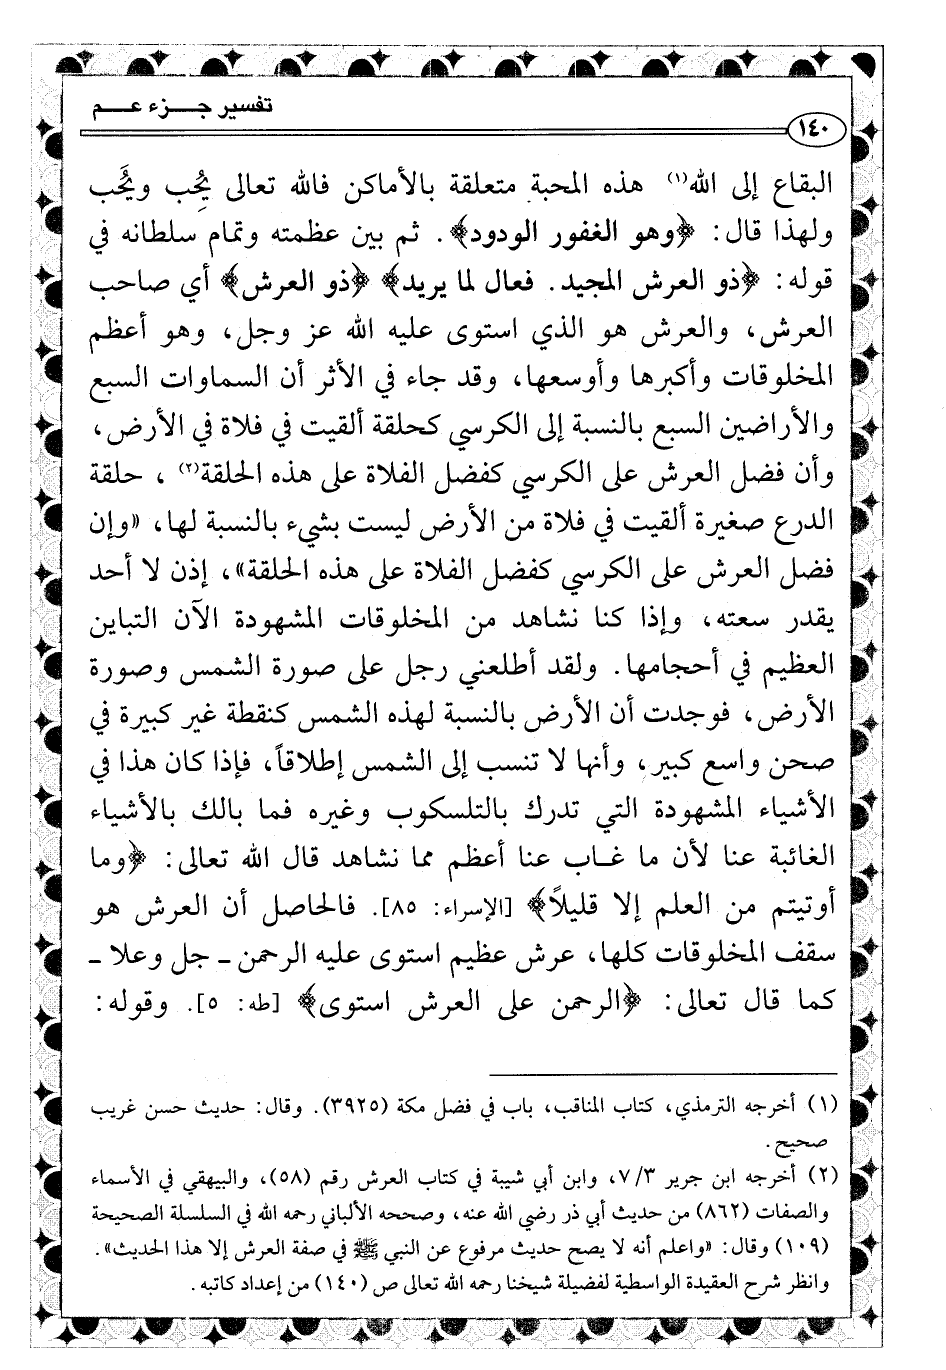 تفسير جزء عم
١٤٠
البقاع إلى الله(١) هذه المحبة متعلقة بالأماكن فالله تعالى يُحِب ويُحَب
ولهذا قال: ﴿وهو الغفور الودود﴾. ثم بين عظمته وتمام سلطانه في
قوله: ﴿ذو العرش المجيد. فعال لما يريد﴾ ﴿ذو العرش﴾ أي صاحب
العرش، والعرش هو الذي استوى عليه الله عز وجل، وهو أعظم
المخلوقات وأكبرها وأوسعها، وقد جاء في الأثر أن السماوات السبع
والأراضين السبع بالنسبة إلى الكرسي كحلقة ألقيت في فلاة في الأرض،
وأن فضل العرش على الكرسي كفضل الفلاة على هذه الحلقة(٢)، حلقة
الدرع صغيرة ألقيت في فلاة من الأرض ليست بشيء بالنسبة لها، «وإن
فضل العرش على الكرسي كفضل الفلاة على هذه الحلقة»، إذن لا أحد
يقدر سعته، وإذا كنا نشاهد من المخلوقات المشهودة الآن التباين
العظيم في أحجامها. ولقد أطلعني رجل على صورة الشمس وصورة
الأرض، فوجدت أن الأرض بالنسبة لهذه الشمس كنقطة غير كبيرة في
صحن واسع كبير، وأنها لا تنسب إلى الشمس إطلاقاً، فإذا كان هذا في
الأشياء المشهودة التي تدرك بالتلسكوب وغيره فما بالك بالأشياء
الغائبة عنا لأن ما غاب عنا أعظم مما نشاهد قال الله تعالى: ﴿وما
أوتيتم من العلم إلا قليلاً﴾ [الإسراء: ٨٥]. فالحاصل أن العرش هو
سقف المخلوقات كلها، عرش عظيم استوى عليه الرحمن ـ جل وعلا ـ
كما قال تعالى: ﴿الرحمن على العرش استوى﴾ [طه: ٥]. وقوله:
(١) أخرجه الترمذي، كتاب المناقب، باب في فضل مكة (٣٩٢٥). وقال: حديث حسن غريب
صحيح.
(٢) أخرجه ابن جرير ٧/٣، وابن أبي شيبة في كتاب العرش رقم (٥٨)، والبيهقي في الأسماء
والصفات (٨٦٢) من حديث أبي ذر رضي الله عنه، وصححه الألباني رحمه الله في السلسلة الصحيحة
(١٠٩) وقال: «واعلم أنه لا يصح حديث مرفوع عن النبي ﷺ في صفة العرش إلا هذا الحديث».
وانظر شرح العقيدة الواسطية لفضيلة شيخنا رحمه الله تعالى ص (١٤٠) من إعداد كاتبه.